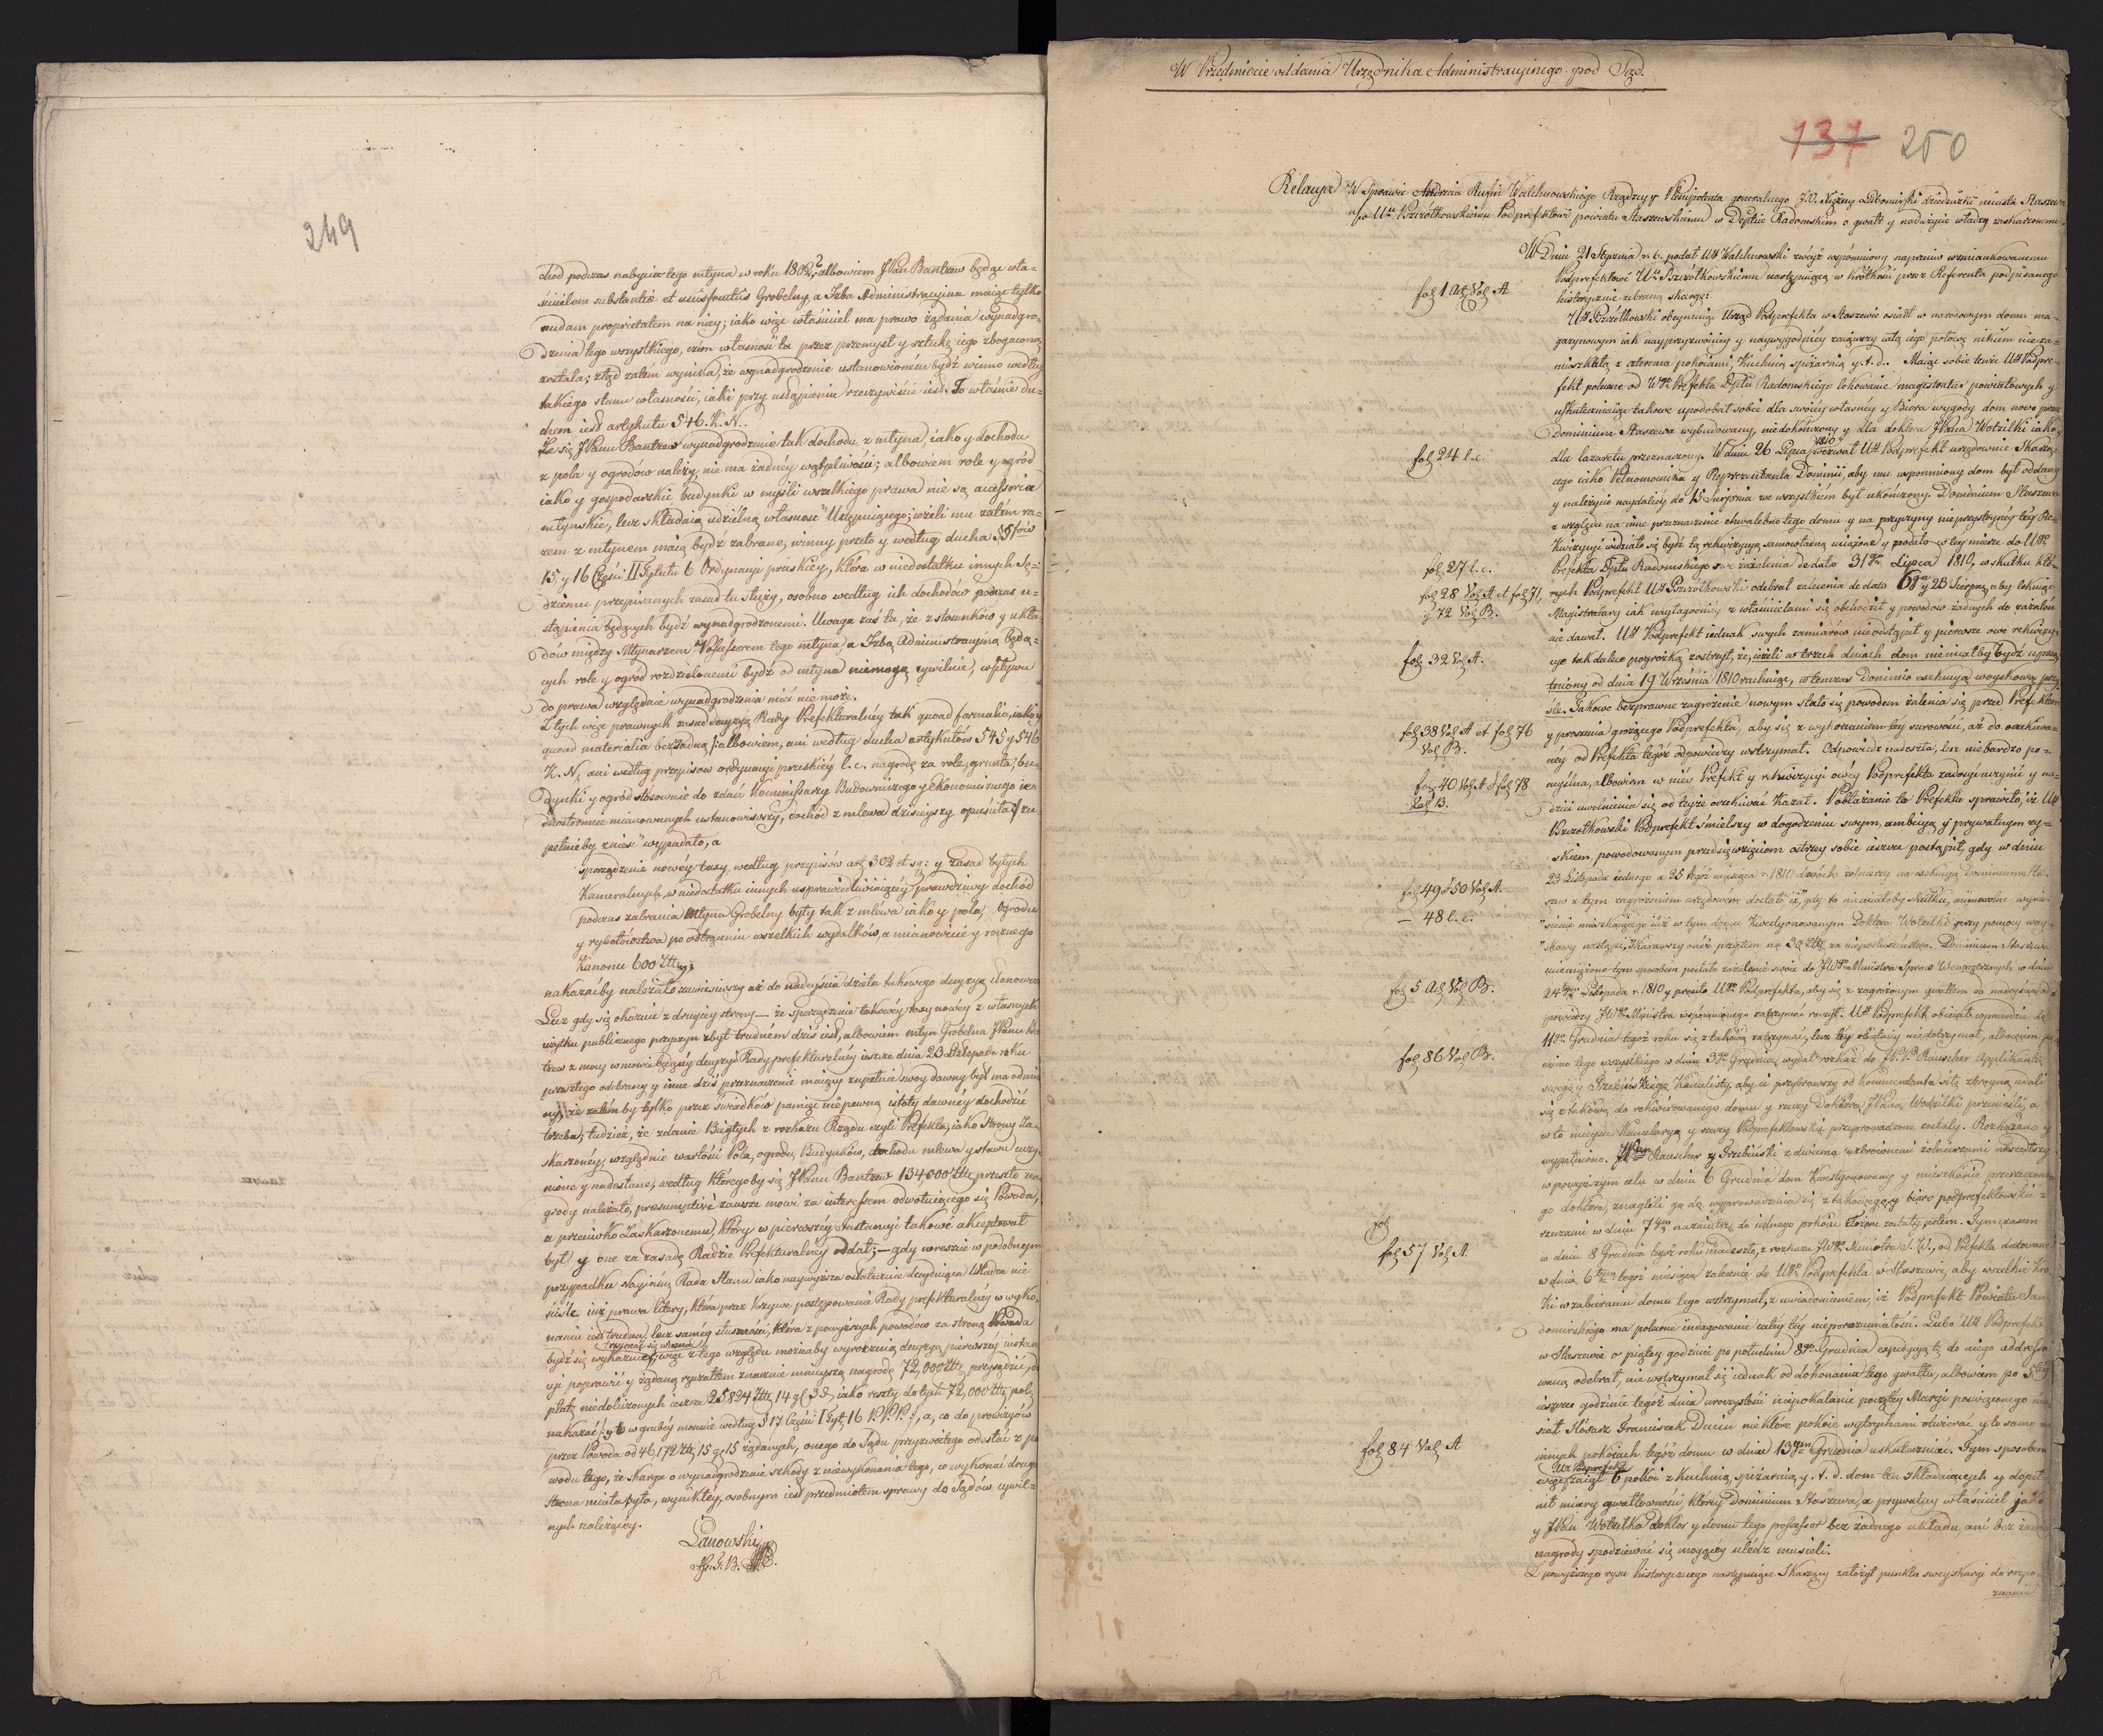 249
chod podczas nabycia tego młyna w roku 1802? albowiem JPan Bantzew będąc wła-
ścicielem substantiæ et ususfructus Grobelny, a Izba Administracyjna maiąc tylko
nudam proprietatem na niey; iako więc właściciel ma prawo żądania wynadgro-
dzenia tego wszystkiego, czem własność ta przez przemysł y sztukę iego zbogaconą
została; ztąd zatém wynika, że wynadgrodzenie ustanowioném bydź winno według
takiego stanu własności, iaki przy ustąpieniu rzeczywiście iest. To właśnie du-
chem iest artykułu 546. K. N..
Że się JPanu Bantzew wynadgrodzenie tak dochodu z młyna, iako y dochodu
z pola y ogrodów należy, nie ma żadnéy wątpliwości; albowiem role y ogród
iako y gospodarskie budynki w myśli wszelkiego prawa nie są accessoria
młyńskie, lecz składaią udzielną własność Ustępuiącego; ieżeli mu zatém ra-
zem z młynem maią bydź zabrane, winny przeto y według ducha §§fów
15. y 16 Części II Tytułu 6 Ordynacyi pruskiey, która w niedostatku innych Sę-
dziemu przepisanych zasad tu służy, osobno według ich dochodów podczas u-
stąpienia będących bydź wynadgrodzonemi. Uwaga zaś ta, że z stosunków y ukła-
dów między Młynarzem Possessorem tego młyna, a Izbą Administracyjną będą-
cych role y ogród rozdzielonemi bydź od młyna niemogą cywilnie, wpływu
do prawa względnie wynadgrodzenia mieć nie może.
Z tych więc prawnych zasad decyzya Rady Prefekturalnéy tak quoad formalia, iako y
quoad materialia bezzadną; albowiem, ani według ducha artykułów 545 y 546
K. N. ani według przepisow ordynacyi pruskiéy l. c. nagrodę za role, grunta, bu-
dynki y ogród stosownie do zdań Kommissarzy Budowniczego y Ekonomicznego ie-
dnostronnie mianowanych ustanowiwszy, dochód z mlewa dzisieyszy opuściła y zu-
pełnie by znieść wypadało, a
sporządzenie nowéy taxy, według przepisów art. 302 et sq: y zasad byłych
Kameralnych, w niedostatku innych usprawiedliwiaiącéy prawdziwy dochód
podczas zabrania Młyna Grobelny były tak z mlewa iako y pola, Ogrodu
y rybołówstwa po odtrąceniu wszelkich wydatków, a mianowicie y rocznego
Kanonu 600 Złł.
nakazać by należało zawiesiwszy aż do nadeyścia dzieła takowego decyzyą stanowczą
Lecz gdy się okazuie z drugiey strony — że sporządzenie takowéy taxy nowéy z własnych
użytku publicznego przyczyn zbyt trudném dziś iest, albowiem młyn Grobelna JPanu Ban-
tzew z mocy w mowie będącéy decyzyi Rady prefekturalnéy ieszcze dnia 23 Listopada roku
przeszłego odebrany y inne dziś przeznaczenie maiący zupełnie swoy dawny był ma odmie-
ny, że zatém by tylko przez świadków pamięć niepewną istoty dawnéy dochodzić
trzeba; tudzież, że zdanie Biegłych z rozkazu Rządu czyli Prefekta, iako Strony Za-
skarżonéy, względnie wartości Pola, ogrodu, Budynków, dochodu mlewa y stawu uczy-
nione y nadesłane, według którego by się JPanu Bantzew 134,000 Złł. przeszło na-
grody należało, præsumptivé zawsze mówi za interessem odwołuiącego się Powoda,
a przeciwko Zaskarżonemu, który w pierwszéy Instancyi takowé akceptował
był y one za zasadę Radzie Prefekturalnéy oddał; — gdy wreszcie w podobnym
przypadku Nayiaśn: Rada Stanu iako naywyższa ostatecznie decyduiąca Władza nie
ściśle iuż prawa litery, która przez krzywe postępowanie Rady prefekturalnéy w wyko-
naniu iest trudna, lecz saméy słuszności, która z powyższych powodów za stroną Powoda
trzymać się można
bydź się wykazuie; więc z tego względu możnaby wyrocznią decyzyą pierwszéy instan-
cyi poprawić y żądaną ryczałtem znacznie mnieyszą nagrodę 72,000 Złł. przysądzić, do
płaty niedoliczonych ieszcze 25,824 Złł. 14 gl 3 d, iako reszty do tych 72,000 Złł. pole
nakazać, y to w grubéy monecie według § 17 Części I Tyt. 16 P.P.P., a, co do prowizyów
przez Powoda od 46,172 Złł. 15 gr 15 żądanych, onego do Sądu przyzwoitego odesłać z po
wodu tego, że Skarga o wynadgrodzenie szkody z niewykonania tego, co wykonać druga
Strona miała była, wynikłéy, osobnym iest przedmiotem sprawy do Sądów cywil-
nych należącéy.
Lanowski
W Przedmiocie oddania Urzędnika Administracyinego pod Sąd.
137 250
Relacya W Sprawie Andrzeia Rufin Walchnowskiego Rządzcy y Plenipotenta generalnego J.O. Xiężny Lubomirski dziedziczki miasta Staszewa
c/o Ur. Pszczółkowskiemu Podprefektowi powiatu Staszowskiemu w Dępcie Radomskim o gwałt y nadużycie władzy zaskarżonemu.
W Dniu 21 Stycznia r. b. podał Ur. Walchnowski zwyż wspomniony naprzeciw wzmiankowanemu
Podprefektowi Ur. Pszczółkowskiemu następuiącą w krótkości przez Referenta podpisanego
historycznie zebraną skargę:
fol. 1 Act. Vol. A.
Ur. Pszczółkowski obeymuiąc Urząd Podprefekta w Staszowie osiadł w narodowym domu ma-
gazynowym iak nayprzyzwoiciey y naywygodniéy zaiąwszy całą iego połowę nikiem nie za-
mieszkałą z czterema pokoiami, Kuchnią spiżarnią y. t. d.. Maiąc sobie tenże Ur. Podpre-
fekt polecone od Wgo Prefekta Dptu Radomskiego lokowanie magistratur powiatowych y
uskuteczniaiąc takowe upodobał sobie dla swoiéy własnéy y Biora wygody dom nowo przez
Dominium Staszewa wybudowany, niedokończony y dla doktora JPana Wotzilki iako
fol. 24 l. c.
dla lazaretu przeznaczony. W dniu 26 Lipca 1810 wezwał Ur. Podprefekt urzędownie Skarżą-
cego iako Pełnomocnika y Reprezentanta Dominii, aby mu wspomniony dom był oddany
y należycie naydaléy do 15 Sierpnia ze wszystkiém był ukończony. Dominium Staszewa
z względu na inne przeznaczenie chwalebne tego domu y na przyczyny nieprzystoynéy téy Re-
kwizycyi widziało się bydź tą rekwizycyą samowładną uciążone y podało w téy mierze do Ur.
fol. 27 l. c.
Prefekta Dptu Radomskiego swe zażalenia de dato 31go Lipca 1810, w skutku któ-
fol. 28 Vol. A et fol. 71,
y 72 Vol. B.
rych Podprefekt Ur. Pszczółkowski odebrał zalecenia de dato 6go y 23 Sierpnia, aby lokuiąc
Magistratury iak naylagodniéy z właścicielami się obchodził y powodów żadnych do zażaleń
nie dawał. Ur. Podprefekt iednak swych zamiarów nieodstąpił y pierwsze owe rekwizy-
fol. 32 Vol. A.
cye tak daleo pogróżką zostrzył, że, ieżeli w trzech dniach dom nie miałby bydź uprzą-
tniony od dnia 19 Września 1810 rachuiąc, wtenczas Dominio exekucyą woyskową przy-
śle. Takowe bezprawne zagrożenie nowym stało się powodem żalenia się przed Prefektem
fol. 38 Vol. A et fol. 76
Vol. B.
y proszenia grożącego Podprefekta, aby się z wykonaniem téy surowości, aż do oczekiwa-
néy od Prefekta tegóż odpowiedzy wstrzymał. Odpowiedz nadeszła, lecz nie bardzo po-
fol. 40 Vol. A et fol. 78
Vol. B.
myślna, albowiem w niéy Prefekt y rekwizycyi owéy Podprefekta zadosyć uczynić y na-
dziei uwolnienia się od teyże oczekiwać kazał. Pobłażanie to Prefekta sprawiło, iż Ur.
Pszczółkowski Podprefekt śmielszy w dogodzeniu swym, ambicyą y prywatnym zy-
skiem powodowanym przedsięwzięciom ostrzey sobie ieszcze postąpił, gdy w dniu
23 Listopada iednego a 25 tegóż miesiąca r. 1810 dwóch żołnierzy na exekucyą Dominium Sta-
fol. 49 et 50 Vol. A.
szew z tym zagrożeniem urzędowém dostało „iż, gdy to nie miałoby skutku, niemylne wynie-
— 48 l. c.
„sienie mieszkaiącego iuż w tym domu kwestyonowanym Doktora Wotzilki przy pomocy woy-
„skowey nastąpi, skarawszy onéż przytem na 30 Złł. za nieposłuszeństwo. Dominium Staszewa
uciemiężone tym sposobem posłało zażalenié swoie do JWgo Ministra Spraw Wewnętrznych w dniu
fol. 5 Act. Vol. B.
24tym Listopada r. 1810 y prosiło Ur. Podprefekta, aby się z zagrożonym gwałtem do nadeyścia od-
powiedzy JWgo Ministra wspomnionego zatrzymać raczył. Ur. Podprefekt obiecał wprawdzie do
11go Grudnia tegóż roku się z takową zatrzymać, lecz téy obietnicy niedotrzymał, albowiem po
fol. 86 Vol. B.
mimo tego wszystkiego w dniu 5go Grudnia wydał rozkaz do JPP. Rauscher Applikanta
swego y Grzebińskiego Kancelisty, aby ci przybrawszy od Kommendanta siłę zbroyną udali
się z takową do rekwirowanego domu y rzeczy Doktora JPana Wodzilki przenieśli, a
w to mieysce Kancelarya y rzeczy Podprefektowskie przeprowadzone zostały. Rozkazano y
wypełniono. JPan Rauscher y Grzebiński z dwiema uzbroionemi żołnierzami nadszedłszy
w powyższym celu w dniu 6 Grudnia dom kwestyonowany y mieszkanie przeznaczone-
go doktora, znaglili go do wyprowadzenia się z takowego y biuro podprefektowskie z
rzeczami w dniu 7dm nazaiutrz do iednego pokoiu złożone zostały potem. Tymczasem
fol
fol. 57 Vol. A.
w dniu 8 Grudnia tegóż roku nadeszło z rozkazu JWgo Ministra S. W., od Prefekta datowane
w dniu 6tym tegóż miesiąca zalecenie do Ur. Podprefekta w Staszewie, aby wszelkie kro-
ki w zabieraniu domu tego wstrzymał, z uwiadomieniem, iż Podprefekt Powiatu San-
domirskiego ma polecone indagowanie całéy téy nieporozumiałości. Lubo Ur. Podprefekt
w Staszewie o piątey godzinie po południu 8go Grudnia expedycyą tę do niego addresso-
waną odebrał, nie wstrzymał się iednak od dokonania tego gwałtu, albowiem po 5téy
ieszcze godzinie tegóż dnia uroczystości niepokalanie poczętéy Maryi poświęconego mu-
siał Ślósarz Franciszek Duciu niektóre pokoie wytrychami otwierać y to samo na
fol. 84 Vol. A
innych pokoiach tegóż domu w dniu 13tym Grudnia uskuteczniać. Tym sposobem
Ur. Podprefekt
więc zaiął 6 pokoi z kuchnią, spiżarnią y. t. d. dom ten składaiących y dopeł-
nił miary gwałtowności, któréy Dominium Staszewa, a prywatny właściciel jako
y JPan Wotzilka doktor y domu tego possessor bez żadnego układu, ani bez żadney
nagrody spodziewać się mogącey uledz musieli.
Z powyższego rysu historycznego następuiące Skarżący założył punkta swey skargi do rozpo-
znania